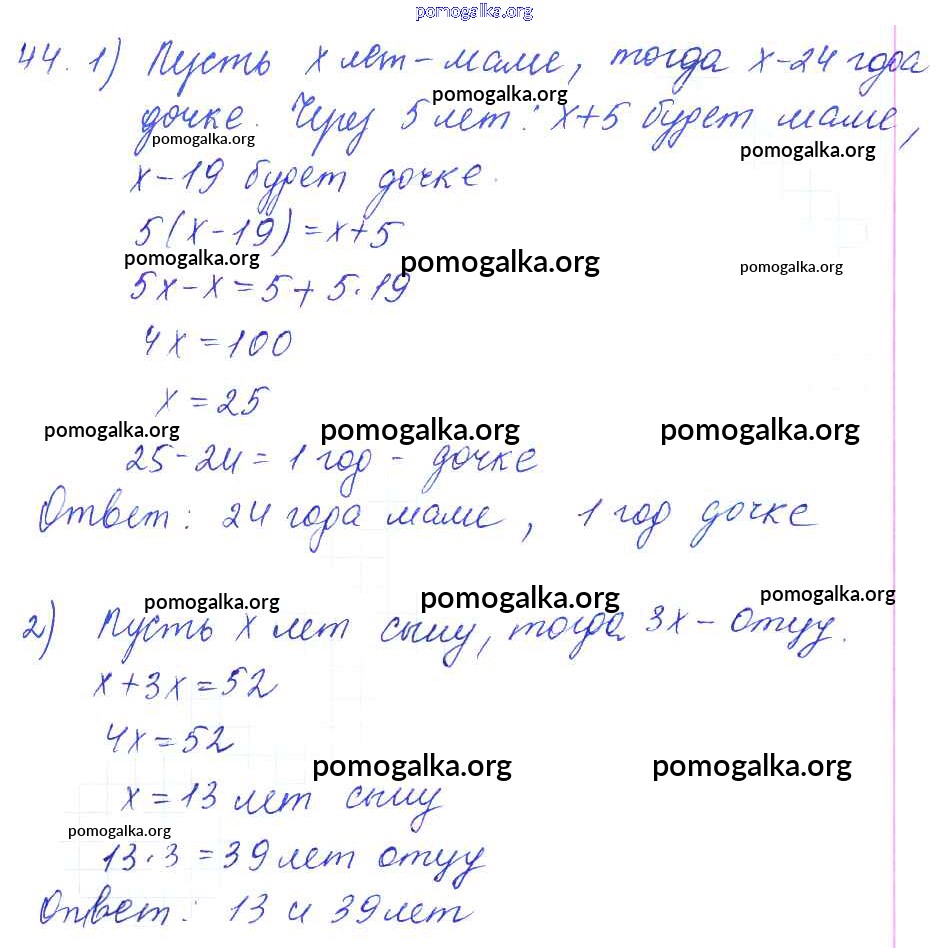 pomogalka.org
44. 1) Пусть x лет - маме, тогда x-24 года
pomogalka.org
дочке. Через 5 лет: x+5 будет маме,
pomogalka.org
pomogalka.org
x-19 будет дочке.
5(x-19)=x+5
pomogalka.org
pomogalka.org
pomogalka.org
5x-x=5+5·19
4x=100
x=25
pomogalka.org
pomogalka.org
pomogalka.org
25-24=1 год - дочке
Ответ: 24 года маме, 1 год дочке
pomogalka.org
pomogalka.org
pomogalka.org
2) Пусть x лет сыну, тогда 3x - отцу.
x+3x=52
4x=52
pomogalka.org
pomogalka.org
x=13 лет сыну
pomogalka.org
13·3=39 лет отцу
Ответ: 13 и 39 лет